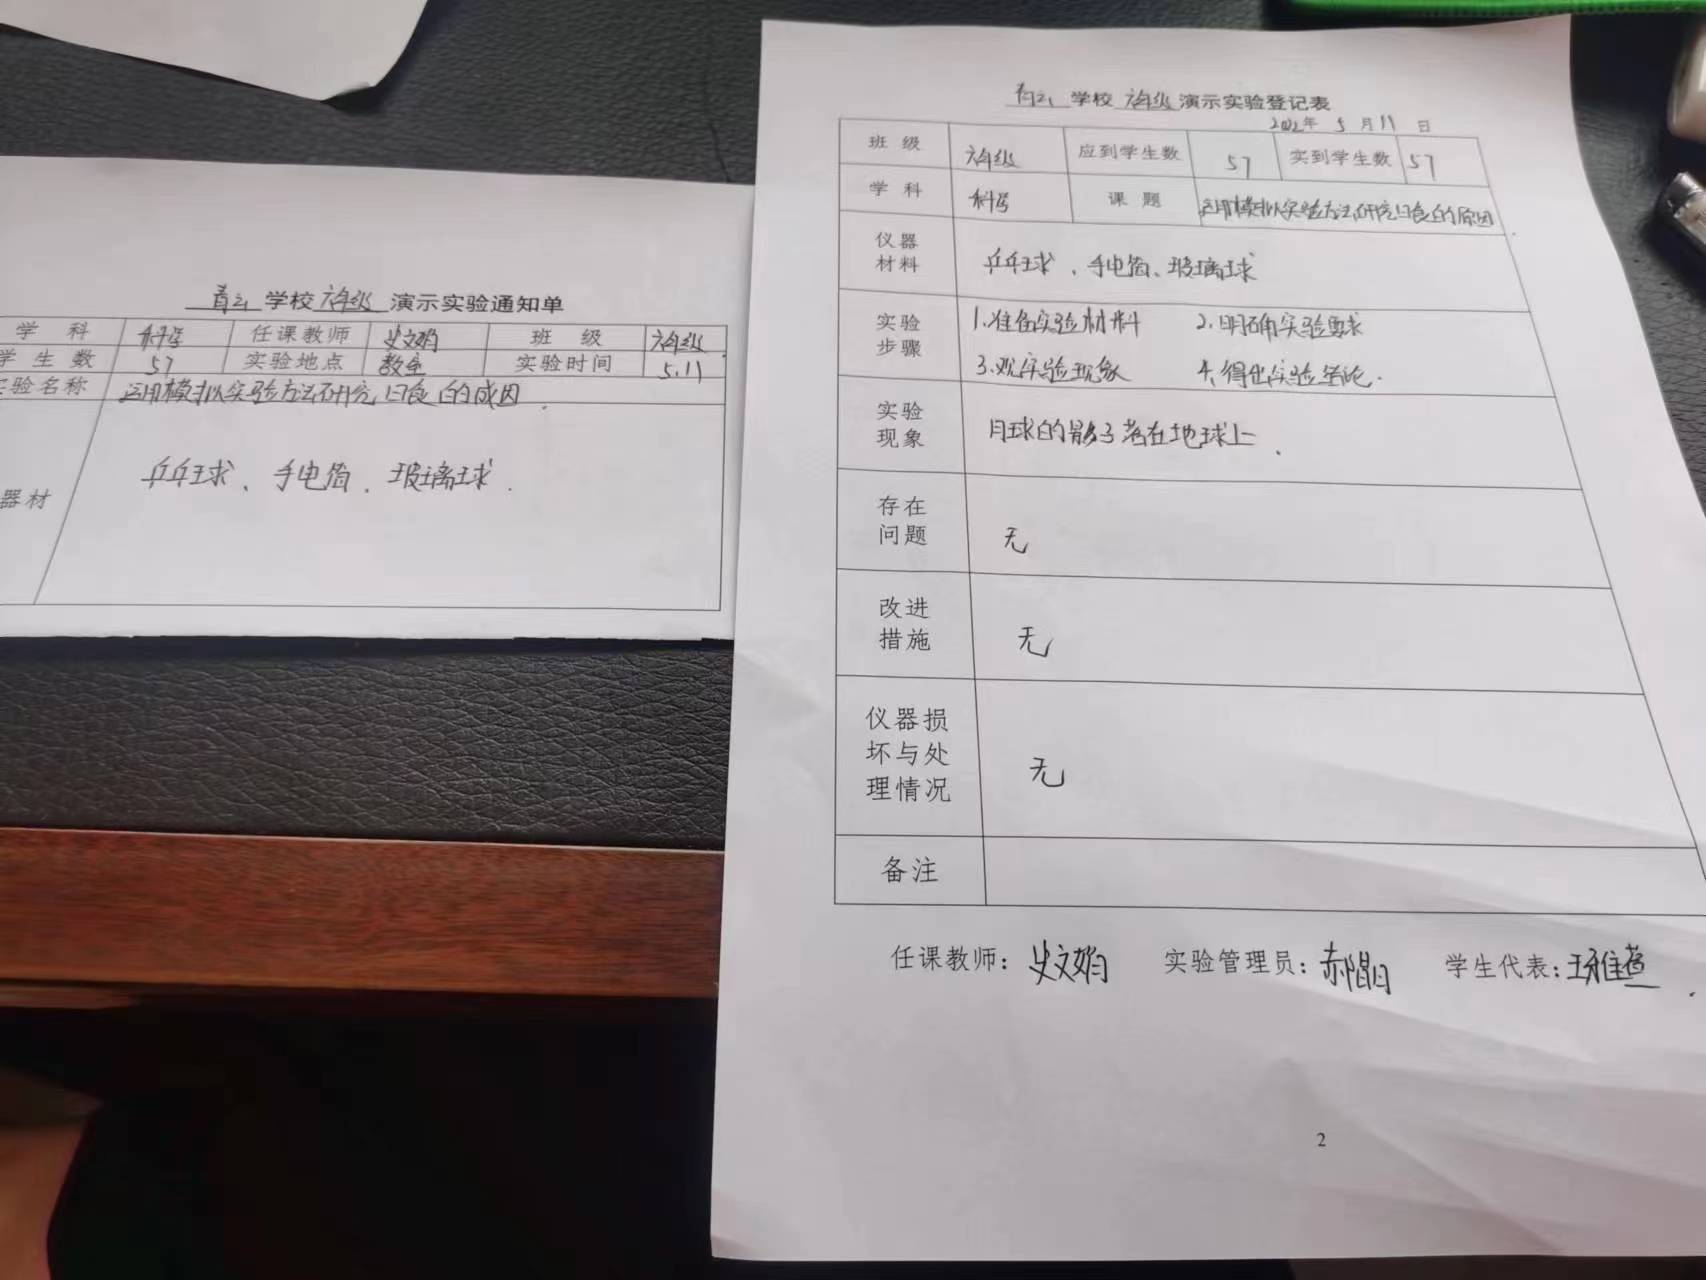 青云学校六年级演示实验通知单
学 科 科学 任课教师 史文娟 班 级 六年级
学生数 57 实验地点 教室 实验时间 5.11
实验名称 运用模拟实验方法研究日食的成因
器材 乒乓球、手电筒、玻璃球.
青云学校六年级演示实验登记表
2022年5月11日
班 级 六年级 应到学生数 57 实到学生数 57
学 科 科学 课 题 运用模拟实验方法研究日食的原因.
仪器材料 乒乓球、手电筒、玻璃球
实验步骤 1.准备实验材料 2.明确实验要求
3.观实验现象 4.得出实验结论.
实验现象 月球的影子落在地球上.
存在问题 无
改进措施 无
仪器损坏与处理情况 无
备注
任课教师：史文娟 实验管理员： 学生代表：
2